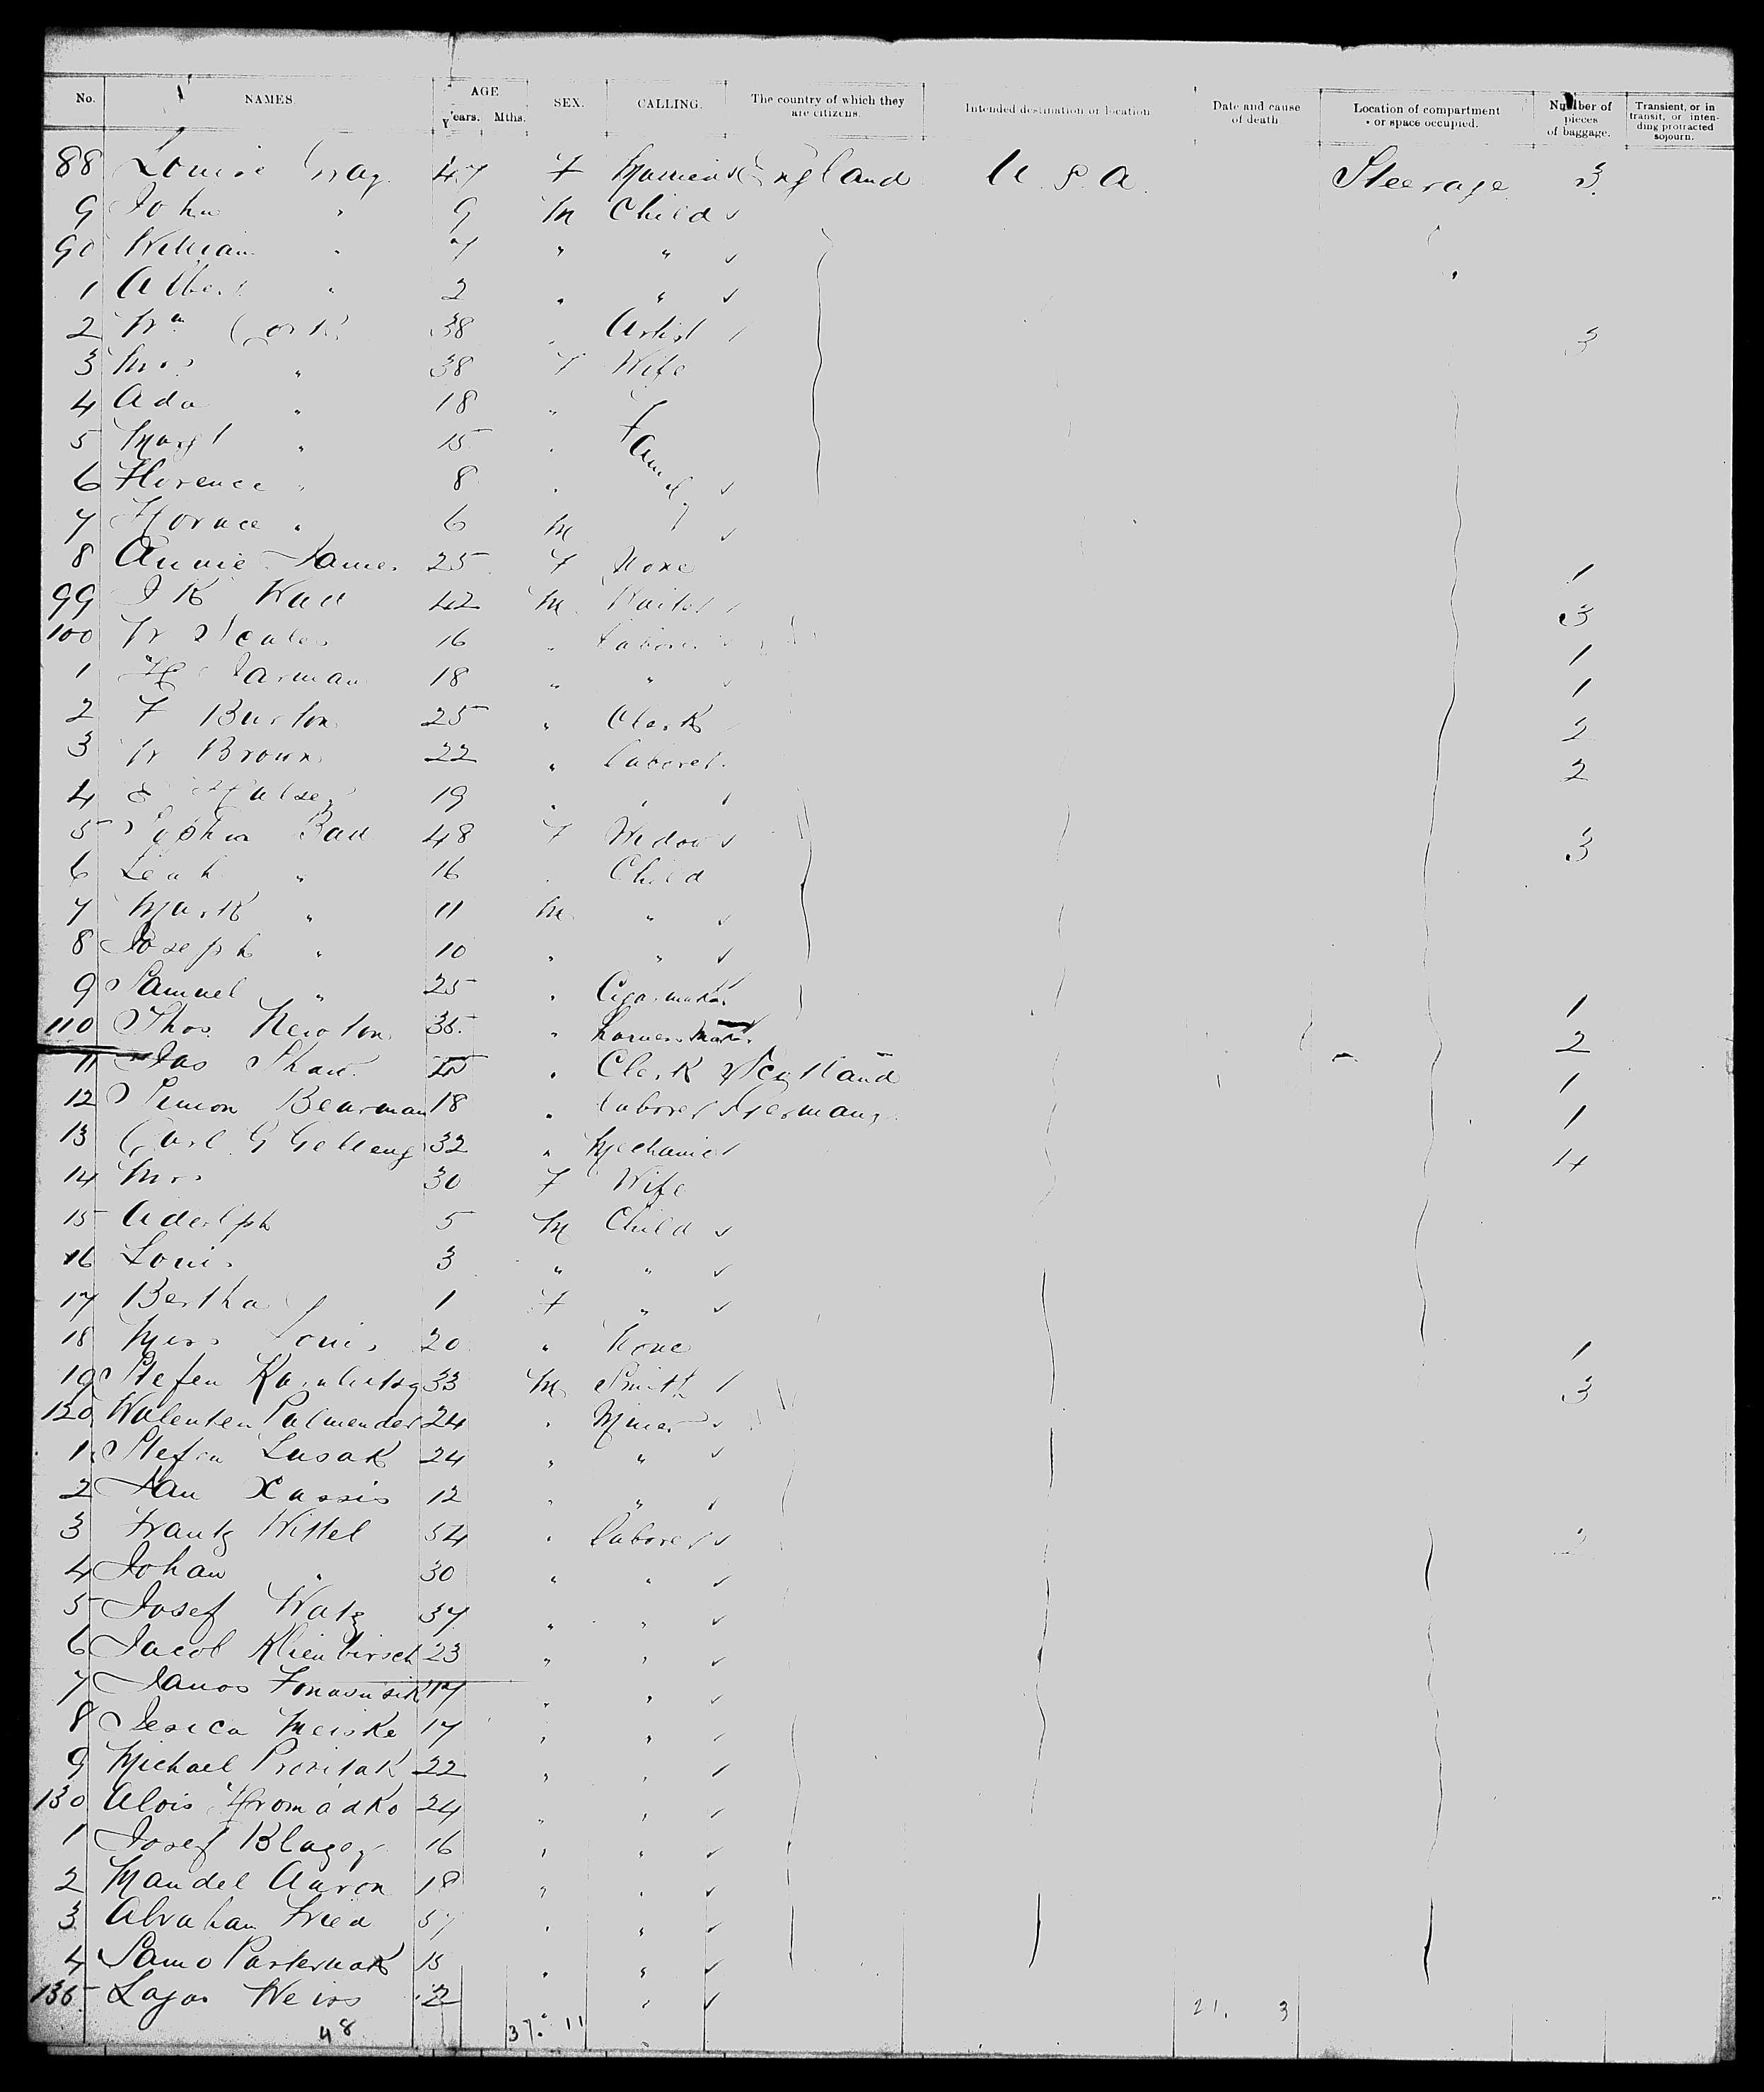 No. NAMES. AGE Years. Mths. SEX. CALLING. The country of which they are citizens. Intended destination or location Date and cause of death Location of compartment or space occupied. Number of pieces of baggage. Transient, or in transit, or intending protracted sojourn.
88 Louise Gray 47 F England U.S.A. Steerage 3
9 John " 9 M Child
90 William " 7 " "
1 Albert " 2 " "
2 Wm Cork 38 " Artist 3
3 Mrs " 38 F Wife
4 Ada " 18 "
5 Margt " 15 " Family
6 Florence " 8 "
7 Horace " 6 M
8 Annie James 25 F None 1
99 J K 42 M Waiter 3
100 W Scales 16 " Laborer 1
1 H Jarman 18 " " 1
2 F Burton 25 " Clerk 2
3 W Brown 22 " Laborer 2
4 E Halsey 19 " "
5 Sophia 48 F Widow 3
6 Leah " 16 " Child
7 Mark " 11 M "
8 Joseph " 10 " "
9 Samuel " 25 " Cigar maker 1
110 Thos Newton 35 " Harness maker 2
11 Jas Shaw " Clerk Scotland 1
12 Simon Bearman 18 " Laborer Germany 1
13 Carl G 32 " Mechanic 4
14 Mrs 30 F Wife
15 Adolph 5 M Child
16 Louis 3 " "
17 Bertha 1 F "
18 Miss Louis 20 " None 1
19 Stefen 33 M Smith 3
120 Walenten Palmender 24 " Miner
1 Stefen Lusak 24 " "
2 Jan Xassis 12 " "
3 Frantz Wittel 54 " Laborer 2
4 Johan " 30 " "
5 Josef Watz 37 " "
6 Jacob Klienbirsch 23 " "
7 Janos 17 " "
8 Meiske 17 " "
9 Michael Provitak 22 " "
130 Alois Hromadko 24 " "
1 Josef 16 " "
2 Mandel Aaron 18 " "
3 Abraham Fried 57 " "
4 Samo Pasternak 15 " "
135 Weiss " "
48 37. 11 21. 3